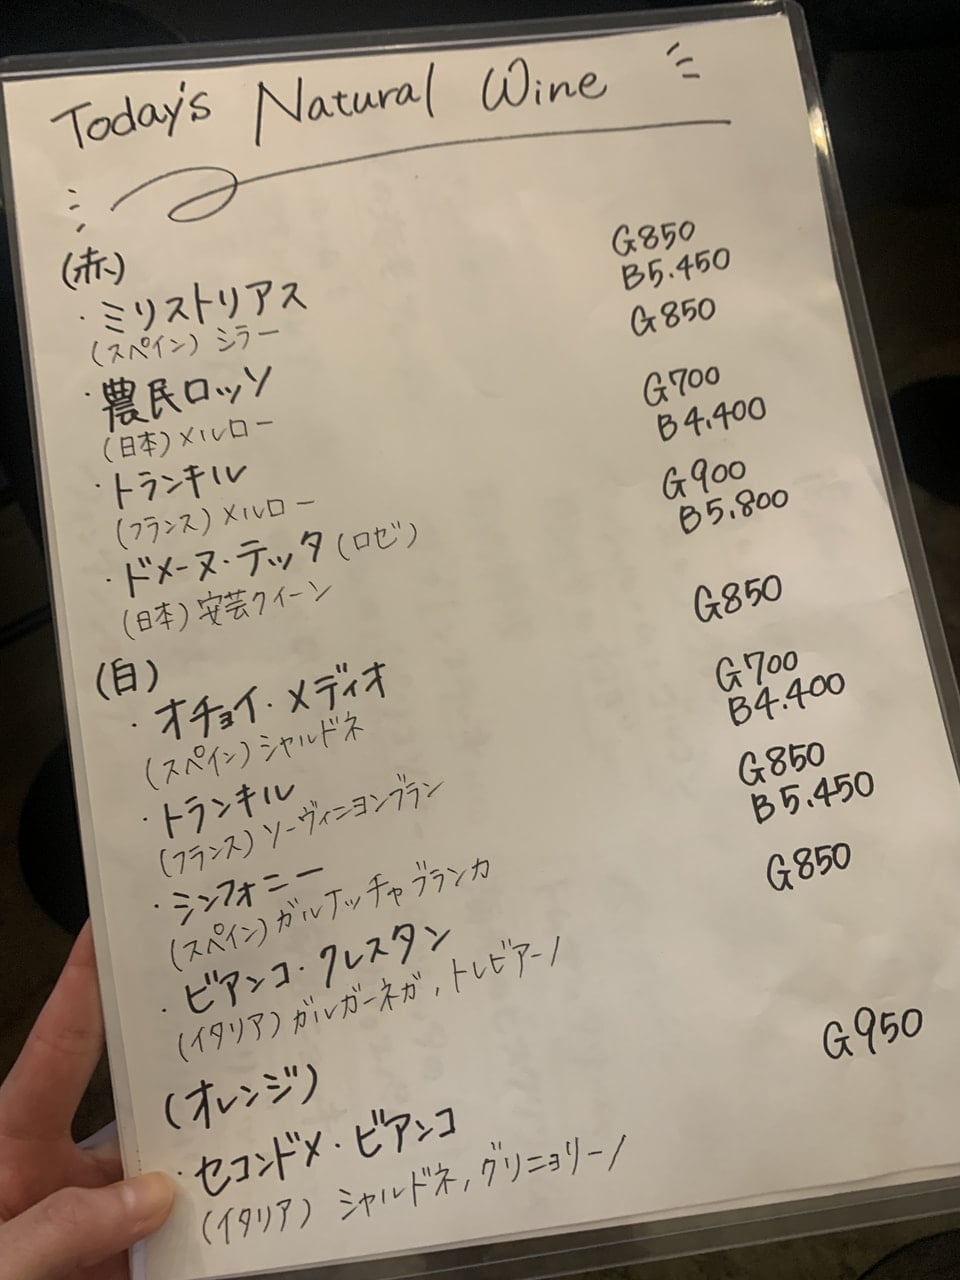 Today's Natural Wine
(赤)
・ミリストリアス G850
(スペイン) シラー B5.450
・農民ロッソ G850
(日本) メルロー
・トランキル G700
(フランス) メルロー B4.400
・ドメーヌ・テッタ (ロゼ) G900
(日本) 安芸クイーン B5.800
(白)
・オチョイ・メディオ G850
(スペイン) シャルドネ
・トランキル G700
(フランス) ソーヴィニヨンブラン B4.400
・シンフォニー G850
(スペイン) ガルナッチャブランカ B5.450
・ビアンコ・クレスタン G850
(イタリア) ガルガーネガ, トレビアーノ
(オレンジ)
・セコンドメ・ビアンコ G950
(イタリア) シャルドネ, グリニョリーノ